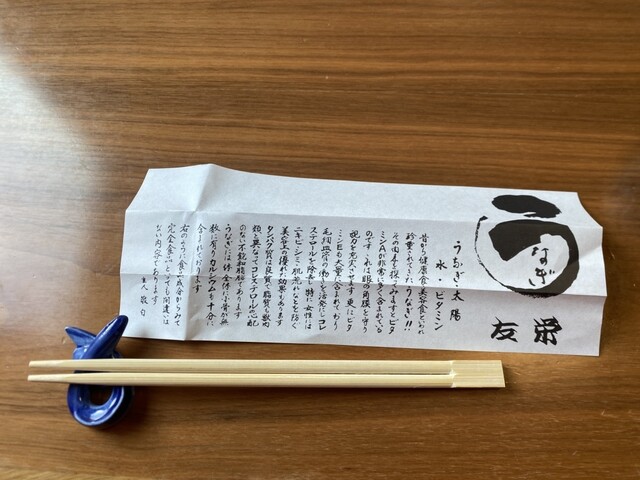 うなぎ
友栄
うなぎ・太陽
水・ビタミン
昔から健康食、美容食といわれ
珍重されてきた、うなぎ!!
その由来を探ってみますとビタ
ミンAが非常に多く含まれている
のです。これは眼の角膜を守り
視力を充実させます。更にビタ
ミンEも大量に含まれており
毛細血管の働きを活発にしコレ
ステロールを除去し特に女性には
ニキビ・シミ・肌荒れなどを防ぐ
美容上の優れた効果もあります
タンパク質は良質で脂質も獣肉
類と異なってコレステロールの心配
のない不飽和脂肪であります
うなぎには体全体に小骨が無
数に有りカルシウムも十分に
含まれております
右のように食べて成分からみて
完全食品といっても間違いは
ない内容をもっております。
主人敬白